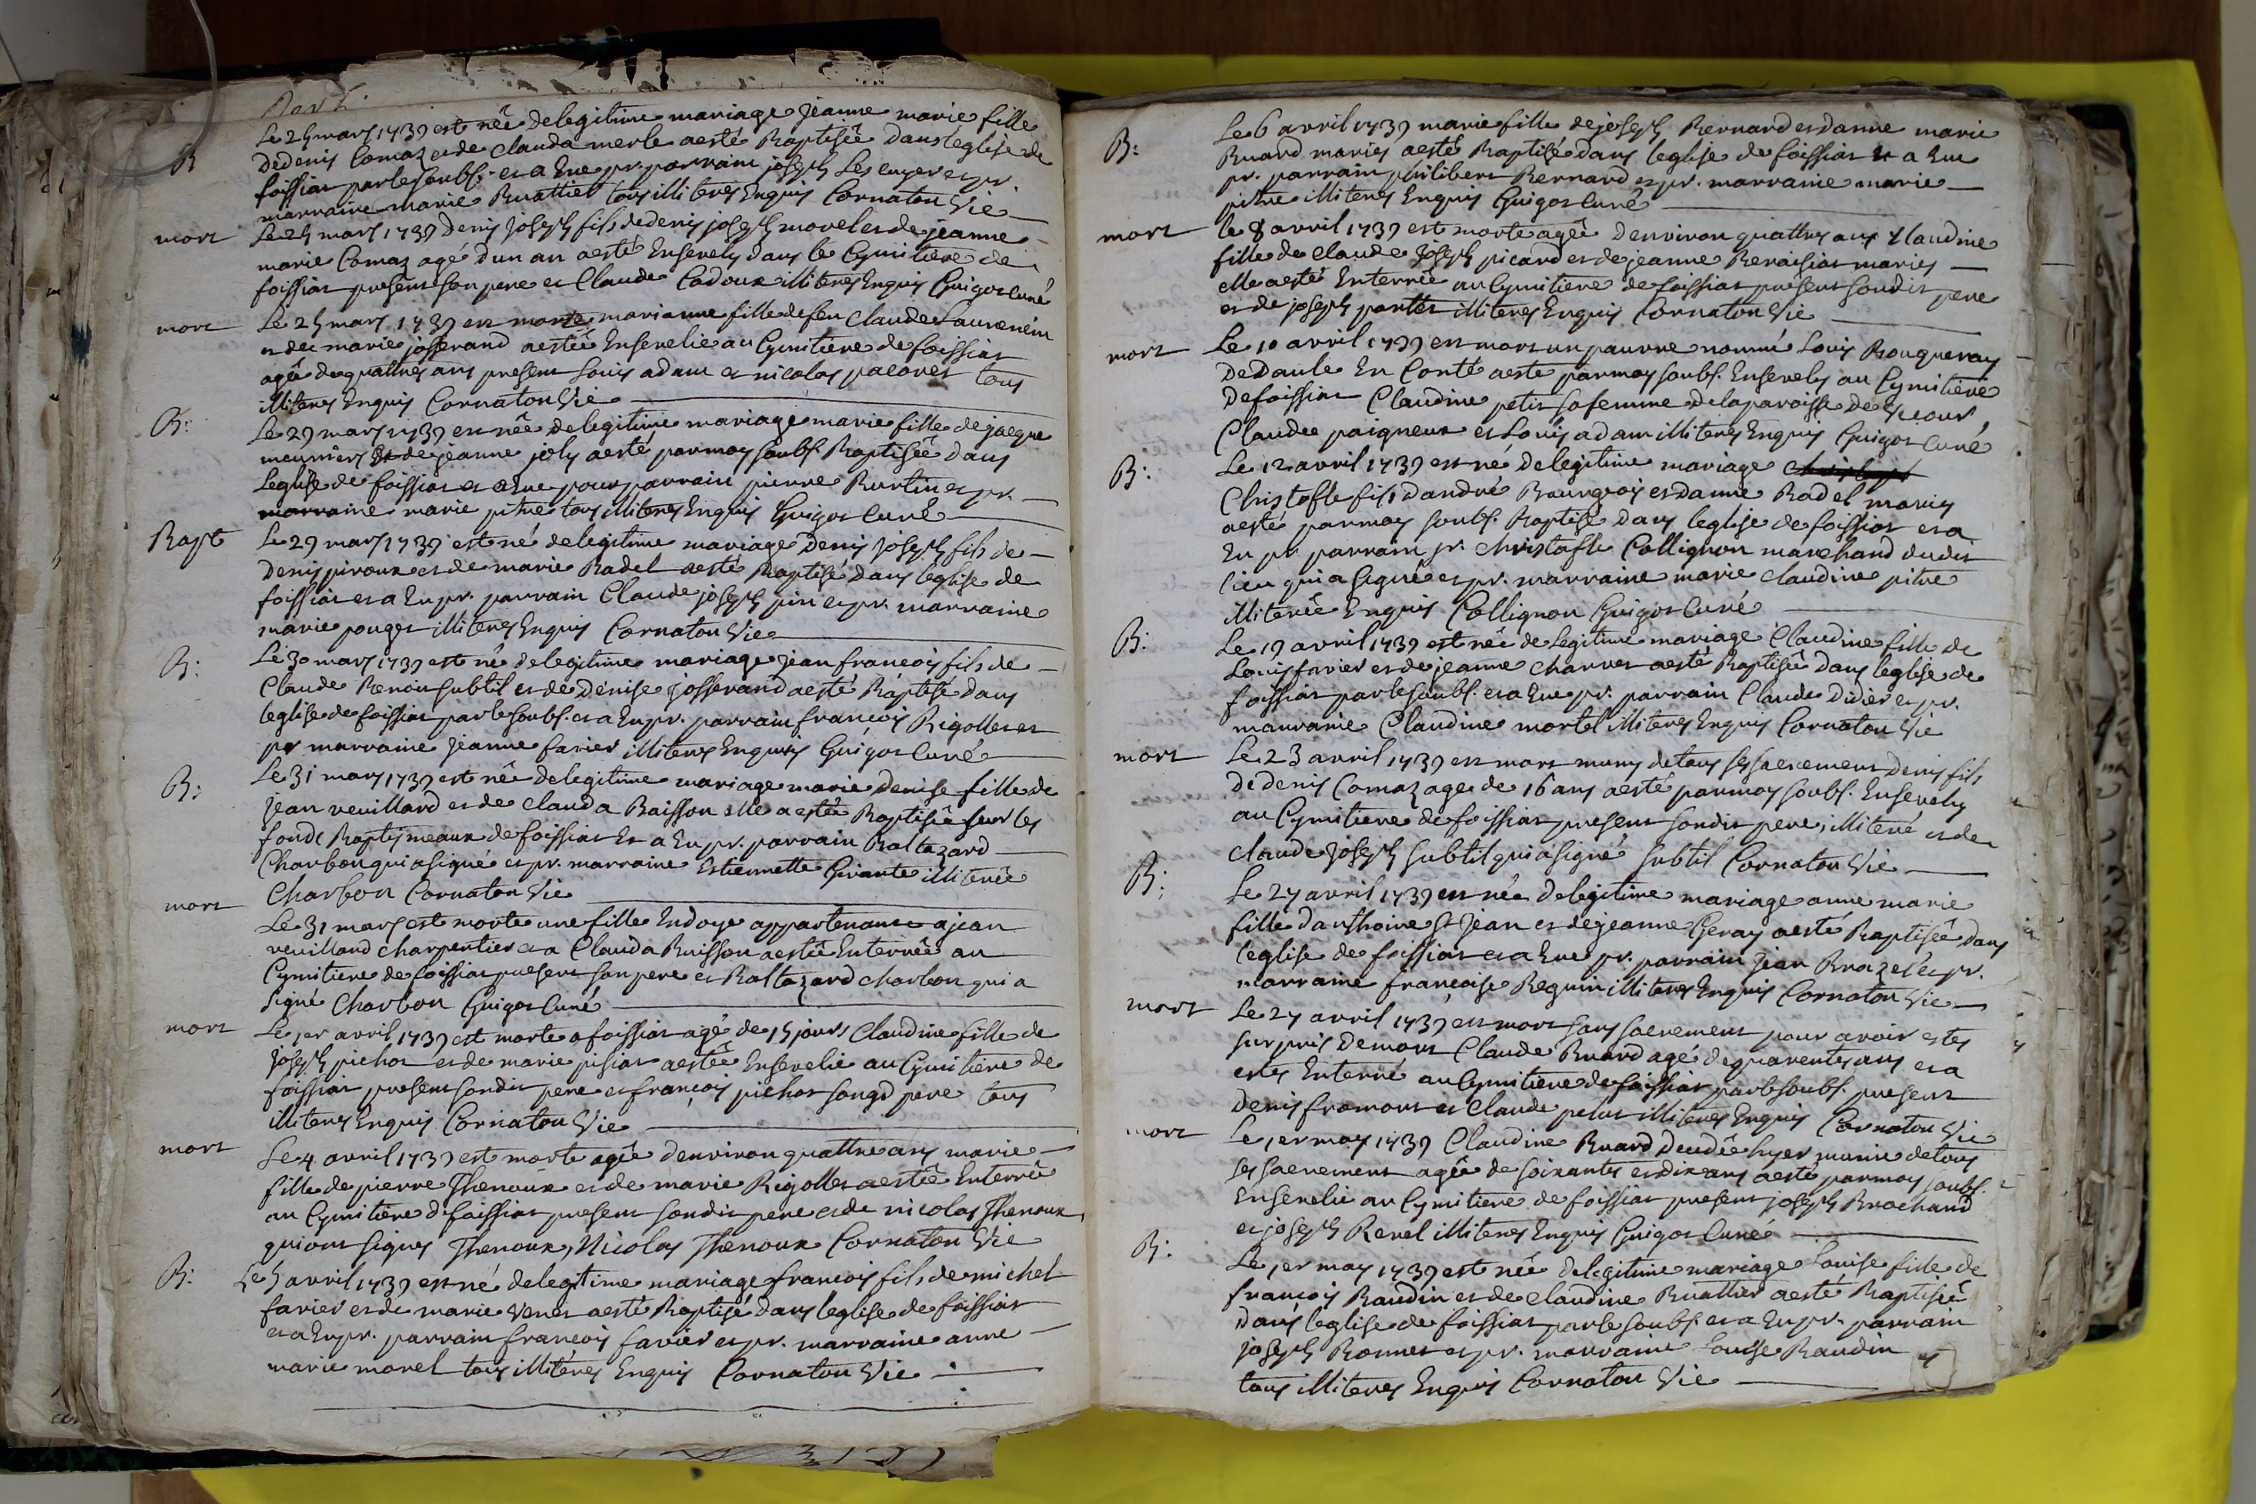 B
Le 25 mars 1739 est née de legitime mariage jeanne marie fille
de denis Comaz et de clauda merle a esté Baptisée dans l'eglise de
foissiat par le soubs. et a Eue pr. parrain joseph Lescuyer et pr.
marraine marie Buattier tous illiteres Enquis Cornaton Vic
mort
Le 25 mars 1739 denis joseph fils de denis joseph morel et de jeanne
marie Comaz agé d'un an a esté Ensevely dans le Cymitiere de
foissiat present son pere et Claude Cadoux illiteres Enquis Guigot Curé
mort
Le 25 mars 1739 est morte marianne fille de feu Claude
et de marie josserand a estée Ensevelie au Cymitiere de foissiat
agée de quattres ans present Louis adam et nicolas tous
illiteres Enquis Cornaton Vic
B:
Le 29 mars 1739 est née de legitime mariage marie fille de jaeque
meuniers Et de jeanne joly a esté par moy soubs. Baptisée dans
Leglise de foissiat et a Eue pour parrain pierre Burtin et pr.
marraine marie pitre tous illiteres Enquis Guigot Curé
Bapt
Le 29 mars 1739 est né de legitime mariage Denis joseph fils de
Denis piroux et de marie Badel a esté Baptisé dans leglise de
foissiat et a Eu pr. parrain Claude joseph pin et pr. marraine
marie pouget illiteres Enquis Cornaton Vic
B:
Le 30 mars 1739 est né de legitime mariage jean francois fils de
Claude Renou subtil et de denise josserand a esté Baptisé dans
leglise de foissiat par le soubs. et a Eu pr. parrain francois Rigollet et
pr marraine jeanne favier illiteres Enquis Guigot Curé
B:
Le 31 mars 1739 est née de legitime mariage marie denise fille de
jean veuillard et de clauda Baisson elle a estée Baptisée sur les
fonds Baptismeaux de foissiat Et a Eu pr. parrain Baltazard
Charbon qui a signé et pr. marraine Estiennette Girante illiterée
Charbon Cornaton Vic
mort
Le 31 mars est morte une fille Endoye appartenante a jean
veuilland charpentier et a Clauda Buisson a estée Enterrée au
Cymitiere de foissiat present son pere et Baltazard charbon qui a
signé Charbon Guigot Curé
mort
Le 1er avril 1739 est morte a foissiat agé de 15 jours Claudine fille de
joseph pichot et de marie pisiat a estée Ensevelie au Cymitiere de
foissiat present sondit pere et francois pichot son gd pere tous
illiteres Enquis Cornaton Vic
mort
Le 4 avril 1739 est morte agée d'environ quattre ans marie
fille de pierre Thenoux et de marie Rigollet a estée Enterrée
au Cymitiere de foissiat present sondit pere et de nicolas Thenoux
qui ont signes Thenoux, Nicolas Thenoux Cornaton Vic
B:
Le 5 avril 1739 est né de legitime mariage francois fils de michel
favier et de marie Venet a esté Baptisé dans leglise de foissiat
et a Eu pr. parrain francois favier et pr. marraine anne
marie morel tous illiteres Enquis Cornaton Vic
B:
Le 6 avril 1739 marie fille de joseph Bernard et d'anne marie
Buard mariés a esté Baptisée dans leglise de foissiat Et a Eue
pr. parrain philibert Bernard et pr. marraine marie
pitre illiteres Enquis Guigot Curé
mort
le 8 avril 1739 est morte agée d'environ quattres ans Claudine
fille de Claude joseph picard et de jeanne mariés
elle a esté Enterrée au Cymitiere de foissiat present sondit pere
et de joseph illiteres Enquis Cornaton Vic
mort
Le 10 avril 1739 est mort un pauvre nommé Louis
De Daule En Conté a esté par moy soubs. Ensevely au Cymitiere
de foissiat Claudine petit sa femme de la paroisse de
Claude paigneur et Louis adam illiteres Enquis Guigot Curé
B:
Le 12 avril 1739 est né de legitime mariage
Christofle fils d'andré Bourgeois et d'anne Badel mariés
a esté par moy soubs. Baptisé dans leglise de foissiat et a
Eu pr parrain sr. christofle Collignon marchand dudit
lieu qui a signé et pr. marraine marie claudine pitre
illiterée Enquis Collignon Guigot Curé
B:
Le 19 avril 1739 est née de Legitime mariage Claudine fille de
Louis favier et de jeanne charvet a esté Baptisée dans leglise de
foissiat par le soubs. et a Eue pr. parrain Claude Didier et pr.
marraine Claudine mortel illiteres Enquis Cornaton Vic
mort
Le 23 avril 1739 est mort muny de tous ses sacrement Denis fils
de denis Comaz age de 16 ans a esté par moy soubs. Ensevely
au Cymitiere de foissiat present sondit pere, illiteré et de
claude joseph subtil qui a signé subtil Cornaton Vic
B:
Le 27 avril 1739 est née de legitime mariage anne marie
fille d'anthoine St jean et de jeanne Geray a esté Baptisée dans
leglise de foissiat et a Eue pr. parrain jean Brazel et pr.
marraine francoise Beguin illiteres Enquis Cornaton Vic
mort
Le 27 avril 1739 est mort sans sacrement pour avoir estés
surpris de mort Claude Buard agé de quarentes ans et a
estés Enterré au Cymitiere de foissiat par le soubs. present
denis fromont et Claude pelus illiteres Enquis Cornaton Vic
mort
Le 1er may 1739 Claudine Buard decedée hyer munie de tous
ses sacrement agée de soixantes et dix ans a esté par moy soubs.
Ensevelie au Cymitiere de foissiat present joseph Brochand
et joseph Revel illiteres Enquis Guigot Curé
B:
Le 1er may 1739 est née de legitime mariage Louise fille de
francois Baudin et de claudine Buattier a esté Baptisée
dans leglise de foissiat par le soubs. et a Eu pr. parrain
joseph Bonnet et pr. marraine Louise Baudin
tous illiteres Enquis Cornaton Vic